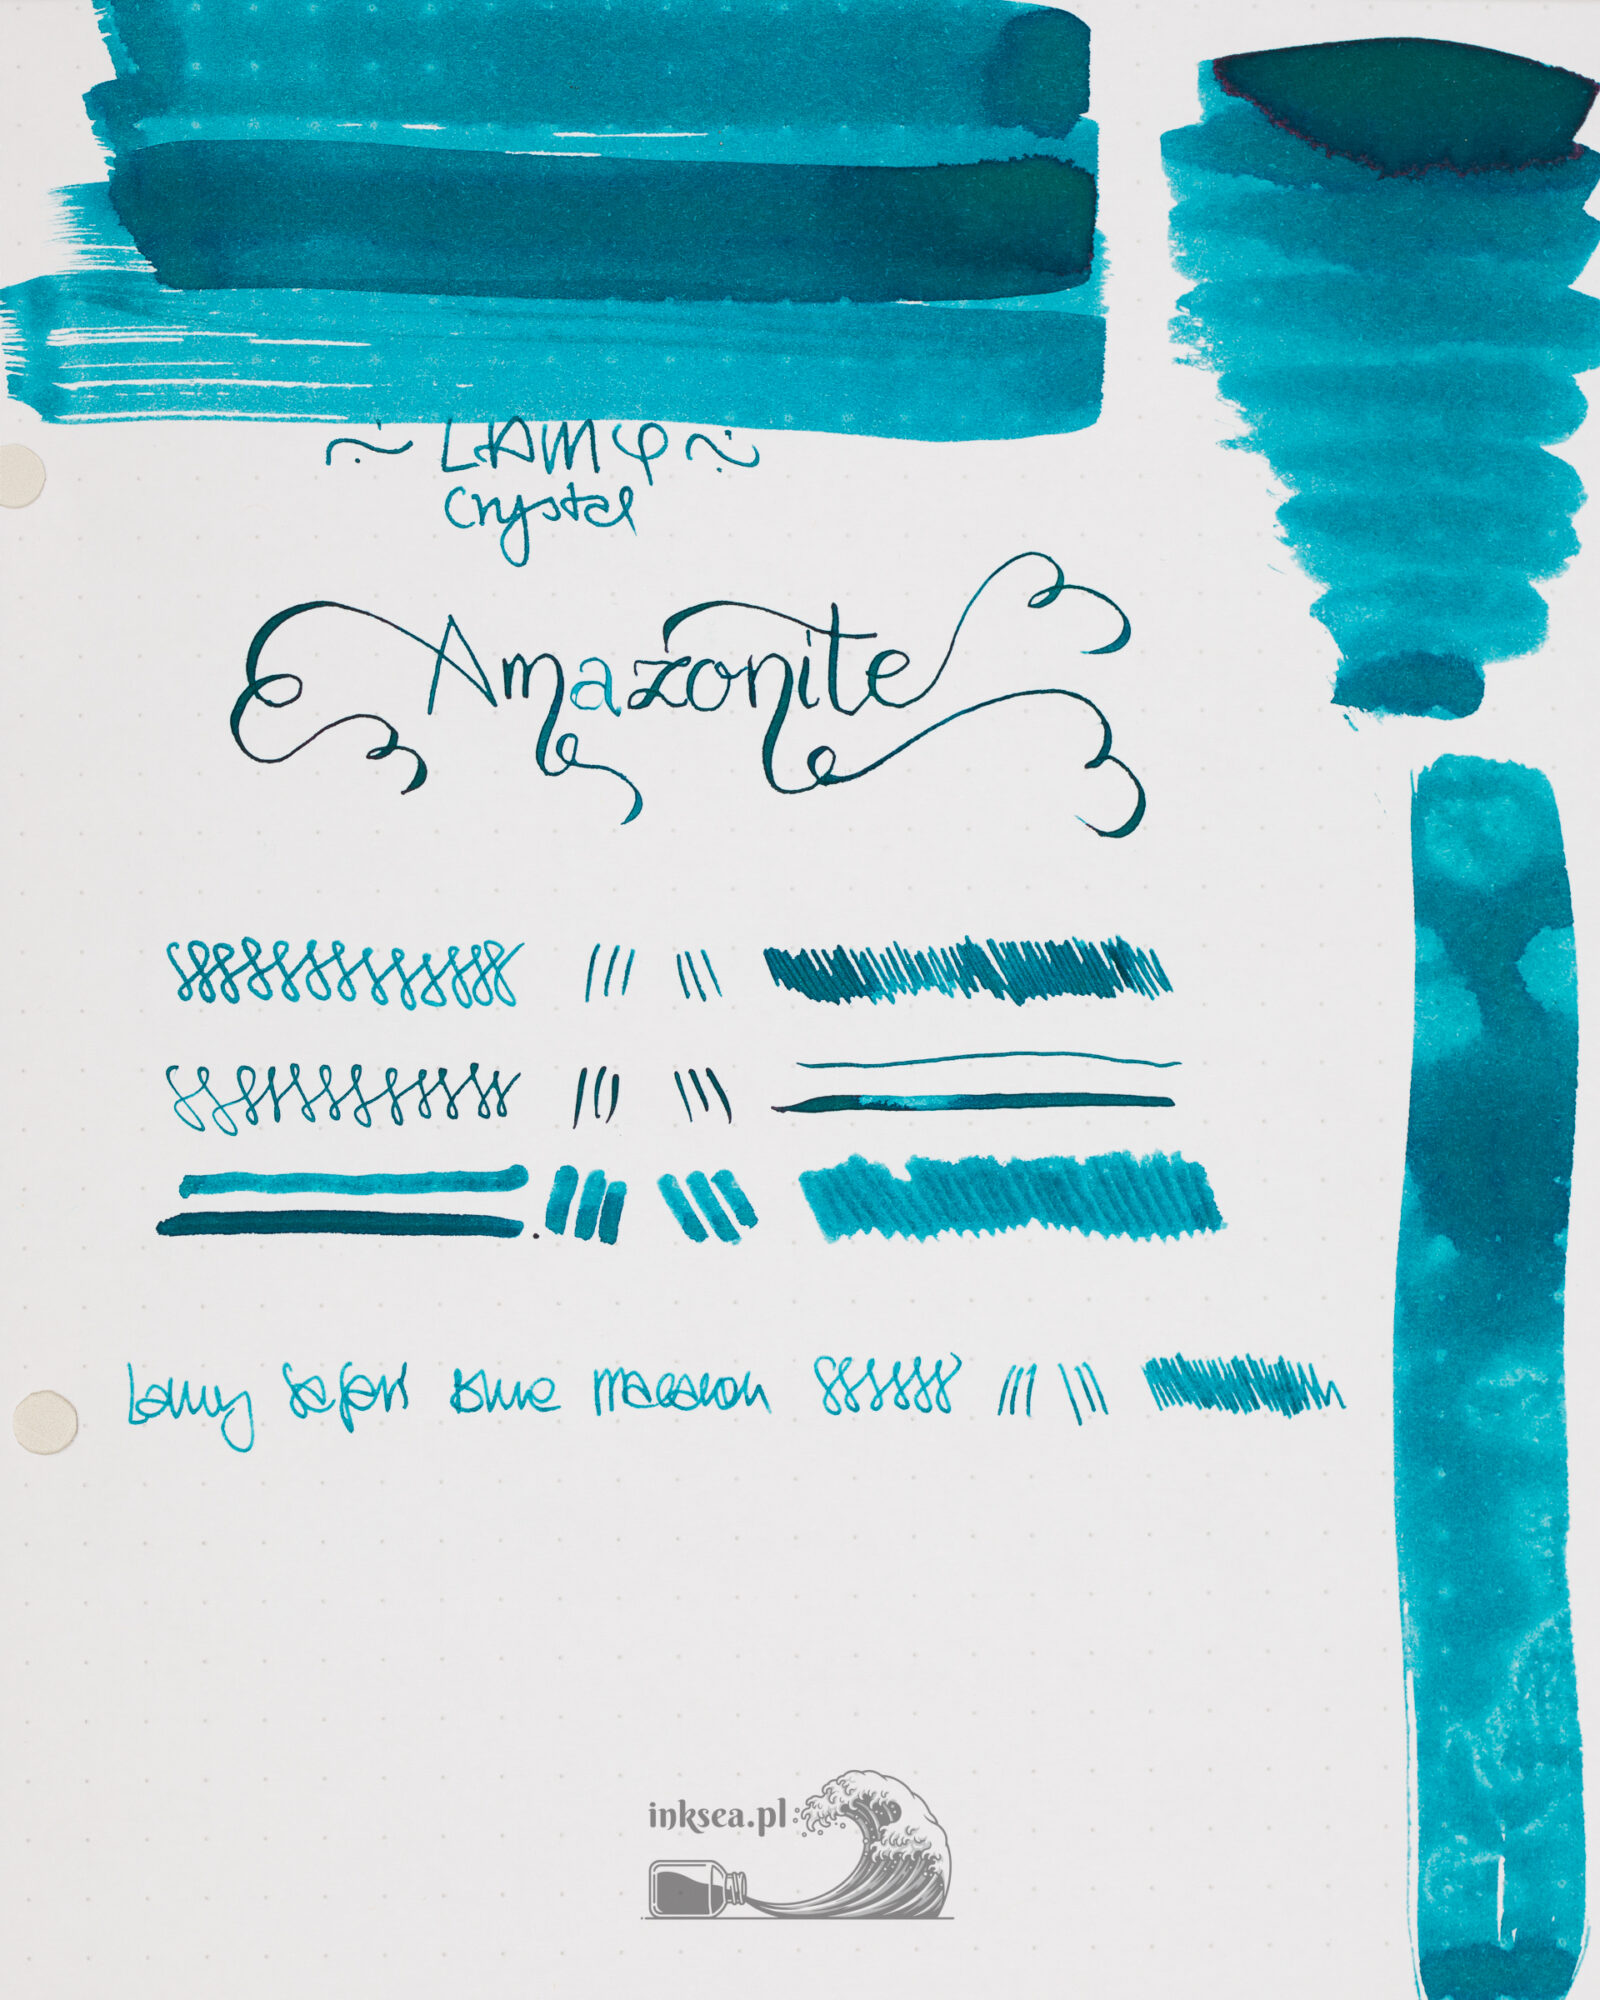 ~ LAMY ~
Crystal
Amazonite
Lamy Safari Blue Macaron
inksea.pl